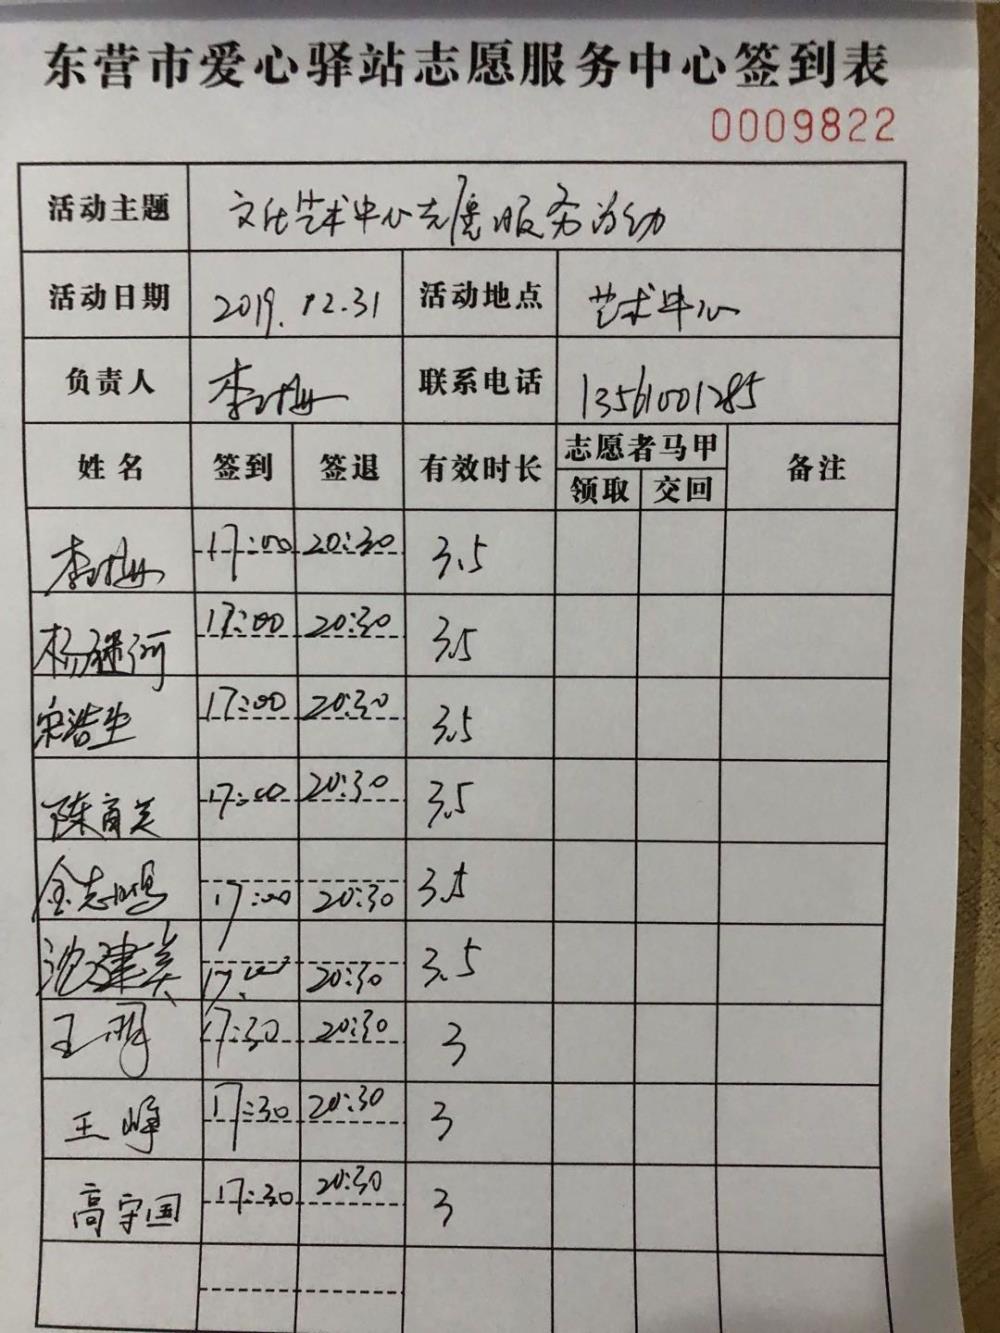 东营市爱心驿站志愿服务中心签到表
0009822
活动主题 文化艺术中心志愿服务活动
活动日期 2019.12.31 活动地点 艺术中心
负责人 李 联系电话 13561001285
姓名 签到 签退 有效时长 志愿者马甲 备注
领取 交回
李 17:00 20:30 3.5
杨 河 17:00 20:30 3.5
宋浩生 17:00 20:30 3.5
陈育美 17:00 20:30 3.5
金志鸣 17:00 20:30 3.5
沈建美 17:00 20:30 3.5
王明 17:30 20:30 3
王峰 17:30 20:30 3
高守国 17:30 20:30 3